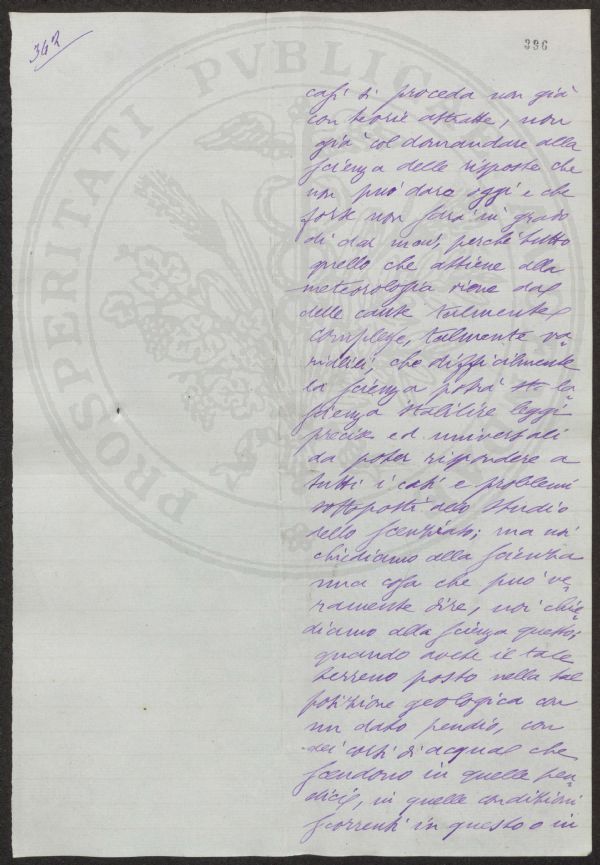 342
396
PROSPERITATI PVBLICAE
casi si proceda non già
con teorie astratte, non
già col domandare alla
scienza delle risposte che
non può dare oggi e che
forse non sarà in grado
di dar mai, perchè tutto
quello che attiene alla
meteorologia viene dal
delle cause talmente
complesse, talmente va-
riabili, che difficilmente
la scienza potrà la
scienza stabilire leggi
precise ed universali
da poter rispondere a
tutti i casi e problemi
sottoposti allo studio
dello scenziato; ma noi
chiediamo alla scienza
una cosa che può ve-
ramente dire, noi chie-
diamo alla scienza questo;
quando avete il tale
terreno posto nella tal
posizione geologica con
un dato pendio, con
dei corsi di acqua che
scendono in quelle pen-
dici, in quelle condizioni
scorrenti in questo o in